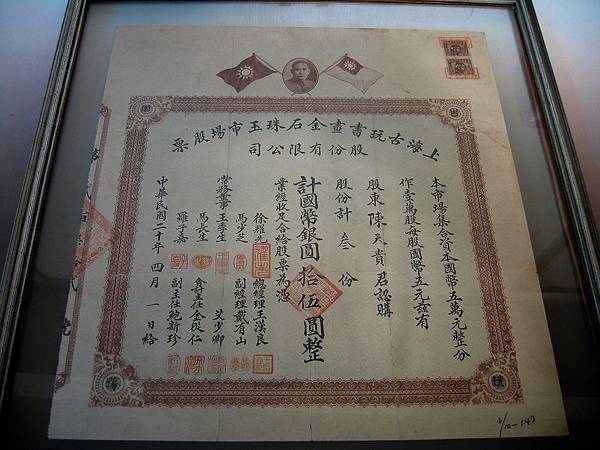 上海古玩書畫金石珠玉市場股票
股份有限公司
本市場集合資本國幣五萬元整分
作壹萬股每股國幣五元茲有
股東陳天貴君認購
股份計叁份
計國幣銀圓拾伍圓整
業經收足合給股票為憑
徐耀先 總經理王漢良
馬少芝 副經理戴有山
常務董事王季生 艾少卿
馬長生 主任金從仁
羅子嘉 副主任鮑新珍
中華民國二十年四月一日給